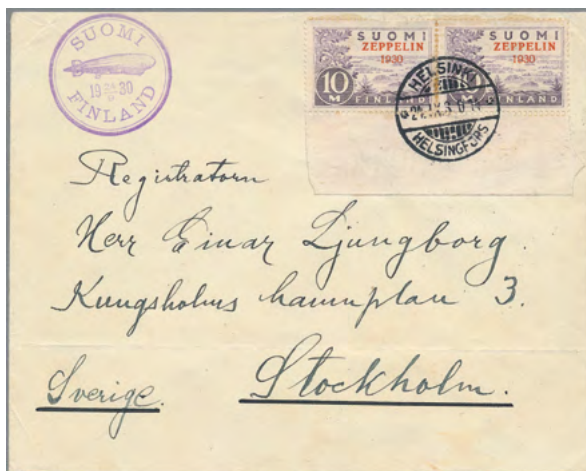 SUOMI
1930
FINLAND
SUOMI
ZEPPELIN
1930
10
M
FINLAND
SUOMI
ZEPPELIN
1930
FINLAND
HELSINKI
HELSINGFORS
Registratorn
Herr Einar Ljungborg.
Kungsholms hamnplan 3.
Stockholm.
Sverige.